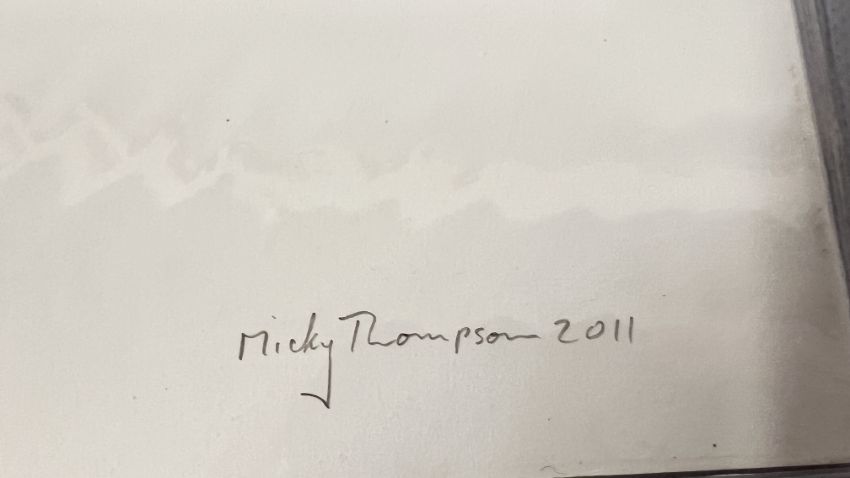 Micky Thompson 2011